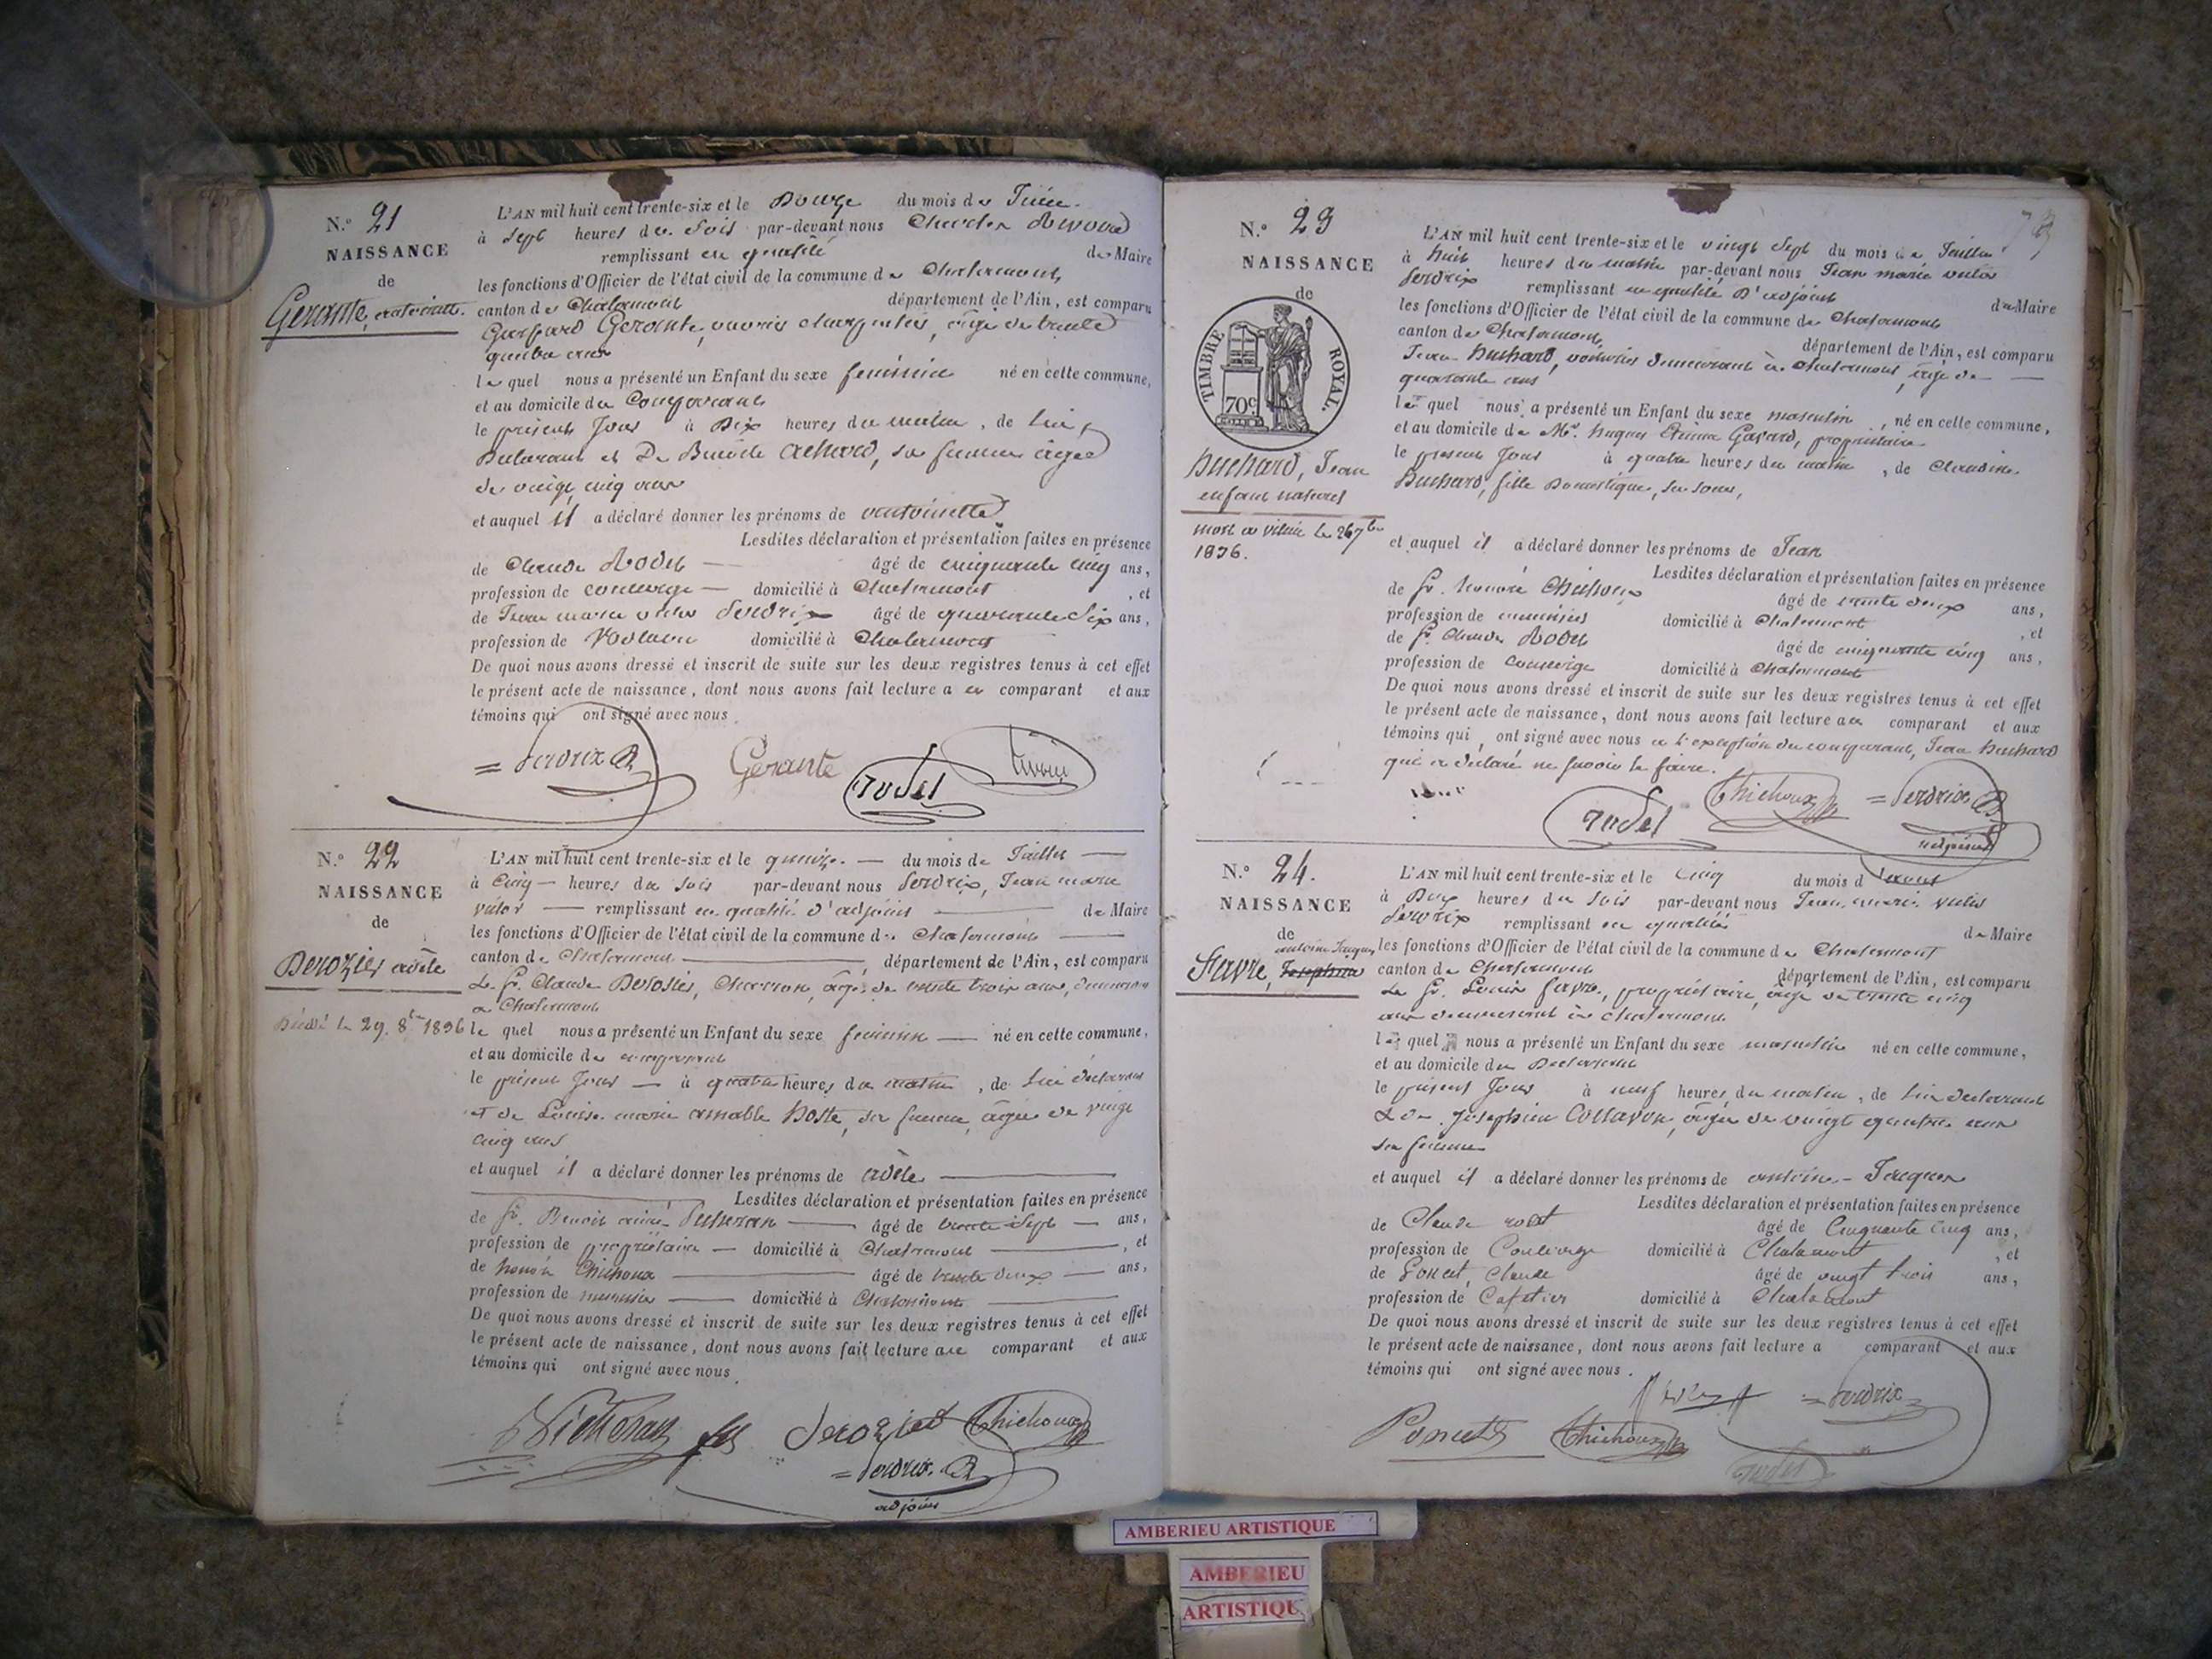 N.° 21
NAISSANCE
de
Gerante, antoinette.
L'AN mil huit cent trente-six et le Douze du mois de Juin.
à Sept heures du Soir par-devant nous
remplissant en qualité de Maire
les fonctions d'Officier de l'état civil de la commune de Chalamont,
canton de Chalamont département de l'Ain, est comparu
Gerante, ouvrier charpentier, âgé de trente
ans
le quel nous a présenté un Enfant du sexe féminin né en cette commune,
et au domicile du Comparant
le présent Jour à Dix heures du matin, de lui
Déclarant et De Benoite Achard, sa femme âgée
de vingt cinq ans
et auquel il a déclaré donner les prénoms de antoinette
Lesdites déclaration et présentation faites en présence
de Claude Rodet âgé de cinquante cinq ans,
profession de concierge domicilié à Chalamont, et
de Jean marie victor Serdrix âgé de quarante Six ans,
profession de Notaire domicilié à Chalamont
De quoi nous avons dressé et inscrit de suite sur les deux registres tenus à cet effet
le présent acte de naissance, dont nous avons fait lecture a ce comparant et aux
témoins qui ont signé avec nous
Serdrix Gerante rodet
N.° 22
NAISSANCE
de
Derozier adèle
Décédé le 29. 8bre 1836
L'AN mil huit cent trente-six et le quinze du mois de Juillet
à Cinq heures du soir par-devant nous Serdrix, Jean marie
victor remplissant en qualité d'adjoint de Maire
les fonctions d'Officier de l'état civil de la commune de Chalamont
canton de Chalamont, département de l'Ain, est comparu
Le Sr. Claude Derosier, Charron, âgé de trente trois ans, demeurant
a Chalamont
le quel nous a présenté un Enfant du sexe féminin né en cette commune,
et au domicile du comparant
le présent Jour à quatre heures du matin, de lui déclarant
et de Louise marie amable Hoste, sa femme, âgée de vingt
cinq ans
et auquel il a déclaré donner les prénoms de adèle
Lesdites déclaration et présentation faites en présence
de Sr. Benoit aimé âgé de trente Sept ans,
profession de propriétaire domicilié à Chalamont, et
de honoré Chichoux âgé de trente deux ans,
profession de menuisier domicilié à Chalamont
De quoi nous avons dressé et inscrit de suite sur les deux registres tenus à cet effet
le présent acte de naissance, dont nous avons fait lecture au comparant et aux
témoins qui ont signé avec nous.
Derozier Chichoux
Serdrix
adjoint
N.° 23
NAISSANCE
de
TIMBRE ROYAL.
70c
Buchard, Jean
enfant naturel
mort a le 26 7bre
1836.
L'AN mil huit cent trente-six et le vingt Sept du mois de Juillet
à huit heures du matin par-devant nous Jean marie victor
Serdrix remplissant en qualité d'adjoint du Maire
les fonctions d'Officier de l'état civil de la commune de Chalamont
canton de Chalamont, département de l'Ain, est comparu
Jean Buchard, voiturier demeurant à Chalamont, âgé de
quarante ans
le quel nous a présenté un Enfant du sexe masculin, né en cette commune,
et au domicile de Mr. hugues Etienne Gavard, propriétaire
le présent Jour à quatre heures du matin, de Claudine
Buchard, fille Domestique, sa soeur,
et auquel il a déclaré donner les prénoms de Jean
Lesdites déclaration et présentation faites en présence
de Sr. honoré Chichoux âgé de trente deux ans,
profession de menuisier domicilié à Chalamont, et
de Sr. Claude Rodet âgé de cinquante cinq ans,
profession de concierge domicilié à Chalamont
De quoi nous avons dressé et inscrit de suite sur les deux registres tenus à cet effet
le présent acte de naissance, dont nous avons fait lecture au comparant et aux
témoins qui ont signé avec nous a l'exception du comparant, Jean Buchard
qui a déclaré ne savoir le faire.
rodet Chichoux Serdrix
adjoint
N.° 24.
NAISSANCE
de
antoine Jacques
Favre, Josephine
L'AN mil huit cent trente-six et le Cinq du mois d'aout
à Deux heures du soir par-devant nous Jean marie victor
Serdrix remplissant en qualité de Maire
les fonctions d'Officier de l'état civil de la commune de Chalamont
canton de Chalamont département de l'Ain, est comparu
Le Sr. Louis favre, propriétaire, âgé de trente cinq
ans demeurant à Chalamont
le quel nous a présenté un Enfant du sexe masculin né en cette commune,
et au domicile du Déclarant
le présent Jour à neuf heures du matin, de lui déclarant
& de Josephine Collavon, âgée de vingt quatre ans
sa femme
et auquel il a déclaré donner les prénoms de antoine Jacques
Lesdites déclaration et présentation faites en présence
de Claude rodet âgé de Cinquante Cinq ans,
profession de Concierge domicilié à Chalamont, et
de Poncet, Claude âgé de vingt trois ans,
profession de Cafetier domicilié à Chalamont
De quoi nous avons dressé et inscrit de suite sur les deux registres tenus à cet effet
le présent acte de naissance, dont nous avons fait lecture a comparant et aux
témoins qui ont signé avec nous.
Serdrix
Poncet Chichoux
rodet
AMBERIEU ARTISTIQUE
AMBERIEU
ARTISTIQU